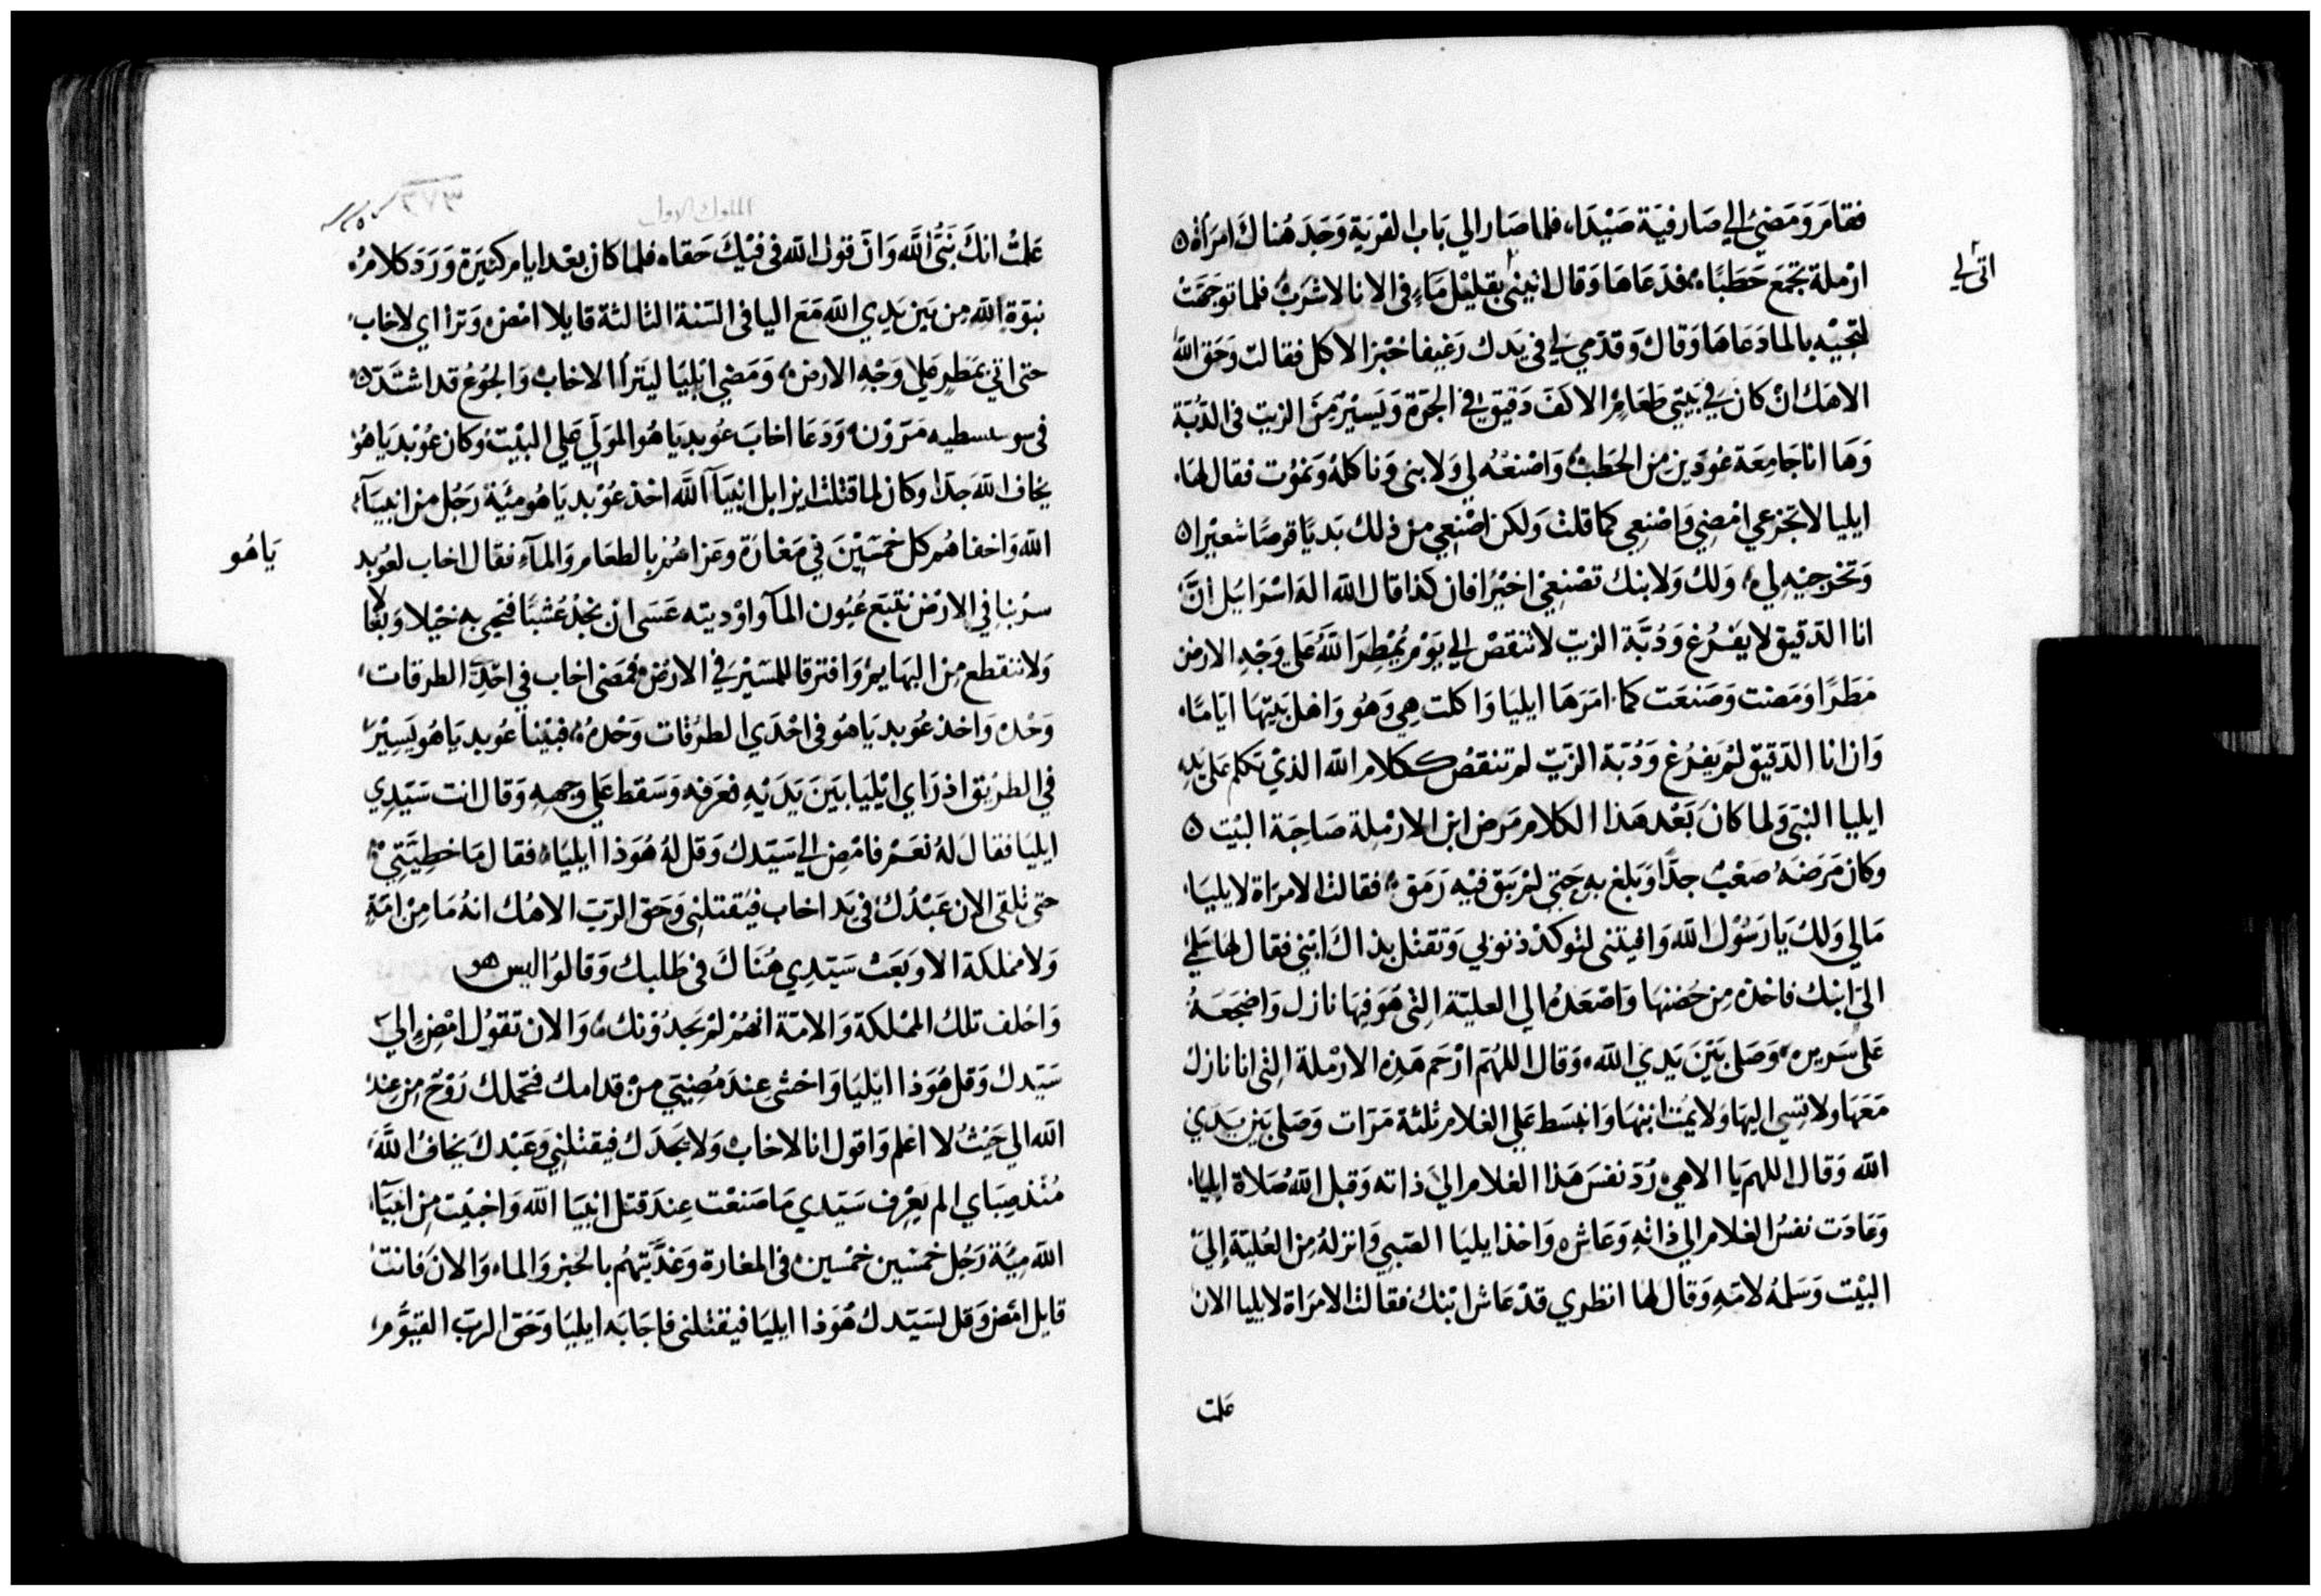 فقامَ وَمَضيَ الي صَارفيَة صَيْدَا، فلما صَار الي بَاب القرَية وَجَدَ هُناكَ امرَأة ه
اتى لي
ارْملة تجْمعَ حَطَبًا، فدَعَاهَا وَقال اتيني بقليْل مَاءٍ في الانا لاشرَبُ فلما توجهَت
لتجيْبه بالما دَعَاهَا وَقال وَقدّمي لي في يَدك رَغيفا خبْزا لاكل فقالت وَحَق الله
الاهَك انْ كانَ في بَيتي طعَامٌ الا كفَ دَقيق في الجرَة وَيَسيْر مِنَ الزيت في الدّبَة
وَهَا انا جَامِعَة عُودَين من الحَطبْ، وَاصْنعُه لي وَلابني وَناكلهُ وَنمَوُت فقال لهَا،
ايليا لا تجْزعي امْضِي وَاصْنعِي كما قلتْ وَلكن اصْنِعِي من ذلك بَديًا قرصًا شعيْرا ه
وَتخرجيْه لي، وَلكْ وَلابنك تصْنعِيْ اخيْرًا فان كذا قال الله الهَ اسْرَايُل انَّ
انا الدَقيق لا يفْرُغ وَدُبَّة الزيت لا تنقصْ الي يَوْم يُمْطِرَ اللَّهُ عَلي وَجْهِ الارض
مَطَرًا وَمَضت وَصَنعَت كما امَرَهَا ايليا وَاكلت هِي وَهُو وَاهْل بَيتهَا ايَامًا،
وَان انا الدَقيق لمْ يَفْرُغ وَدُبَة الزيتْ لم تنقصُ ككلام الله الذيْ تكلم عَلي يَدِه
ايليا النبيَ وَلما كانَ بَعْد هَذا الكلام مَرض ابن الارْمِلة صَاحِبَة البيْت ه
وَكان مَرضَهُ صَعْبْ جدًّا وَبلغ بهِ حَتي لمْ يَبق فيْه رَمَق، فقالتْ الامرَاة لايليَا،
مَالي وَلكْ يَا رَسُوْل الله وَافيتني لتوكدْ ذنوبي وَتقتْل بذاكَ ابْني فقال لهَا هَلمي
اليَ ابنك فاخذه مِن حُضنهَا وَاصْعَدهُ الي العليّة التي هَوَ فيهَا نازل وَاضجَعَهُ
عَلي سَرير، وَصَلي بَيْنَ يَدِي الله، وَقال اللهُمَ ارْحَم هَذِه الارْمَلة التي انا نازل
مَعَهَا ولا تسي اليهَا وَلا يُمتْ ابنهَا وَانبسَط عَلي الغلام ثلثة مَرَات وَصَلي بَين يَدَي
الله وَقال اللهم يَا الاهي رُدّ نفسَ هَذا الغلام الي ذاته وَقبل الله صَلاة ايليا،
وَعَادَت نفسُ الغلام الي ذاتهِ وَعَاش، وَاخذ ايليَا الصّبِي وَانزلهُ مِن العُليّة إلي
البيْت وَسَلمهُ لامّهِ وَقال لها انظري قدْ عَاش ابْنك فقالت الامرَاة لايليا الان
علمت
الملوك الاول
٣٧٣
عَلمتُ انكَ نَبيُّ اللَّه وَانَّ قولَ الله في فيْكَ حَقا، فلما كان بعْد ايام كثيرَة وَرَدَ كلامُ،
نبوَة الله مِن بَين يَدِي الله مَع اليا في السّنة الثالثة قايلا امْض، وَتراأي لاخاب
حتي اتي بمَطرٍ عَلي وَجْهِ الارض، وَمَضي ايْليَا ليَترأا لاخابْ، وَالجُوعُ قد اشتَدّ ه
في سوسسطيه مَرّوْن، وَدَعَا اخابَ عُوبديَاهُو الموَلي عَلي البيْت، وَكان عُوْبديَاهُوْ
يخاف اللهَ جدًا وكان لما قتلتْ ايزابل انبيَآ اللَّه اخذ عُوْبديَاهُو ميَّة رَجُل من انبيَآء
الله وَاخفاهُم كل خمسَيْنَ في مَغارَة وَعَزاهُم بالطعَام وَالمآء فقال اخاب لعُوبد
يَاهُو
سرْ بنا في الارْض نتبَع عُيُون المآ وَاوْديته عَسَي انْ نجْد عُشْبًا فنحي به خيْلا وَبغالا
وَلا ننقطع مِن البهَايم، وَافترقا للمسَيْر في الارْض، فمَضى اخاب في احْدَي الطرقات
وَحْده وَاخذ عُوبديَاهُو في احْدَي الطرُقات وَحْدهُ، فبيْنا عُوبديَاهُو يَسِيْر
في الطرُيق اذ رَاي ايْليَا بَينَ يَدَيْهِ فعَرَفه وَسَقط عَلي وَجهِهِ وَقال انت سَيّدِي
ايليَا فقال لهُ نعَمْ فامْض الي سَيّدك وَقل لهُ هُوَذا ايليَا، فقال مَا خطيَّتي،
حتي تلقي الان عَبْدُكَ في يَد اخاب فيُقتلني وَحَق الرَبّ الاهُك انهُ مَا مِنْ امّةٍ
وَلا مملكة الا وَبَعَث سَيّدِي هُنَاكَ في طَلبك وَقالوُا ليس هو
وَاحْلف تلكَ الممْلكة وَالامّة انهُمْ لمْ يَجدُوْنك، وَالان تقوُل امْضِ الي
سَيّدك وَقل هُوَذا ايْليَا وَاخشي عِندَ مُضِيتي منْ قدامك فتحَملك رُوْحٌ مِن عِنْد
الله الي حَيْثُ لا اعلم وَاقول انا لاخابْ، وَلا يَجدَك فيقتلنيِ وَعَبْدكَ يَخافُ اللَّهَ
مُنْذ صِبَاي الم يَعْرِف سَيّدي مَا صَنعْت عِندَ قتل انبيَا الله وَاخبيْت مِن انبيَآء
الله ميَّة رَجُل خمسَين خمْسين في المغارة وَغدّيتهُم بالخبز وَالماء وَالانَ فانت
قايل امْض وَقل لسَيّدك هُوَذا ايليَا فيقتلني فاجَابَه ايليَا وَحَق الربّ القيُّوم